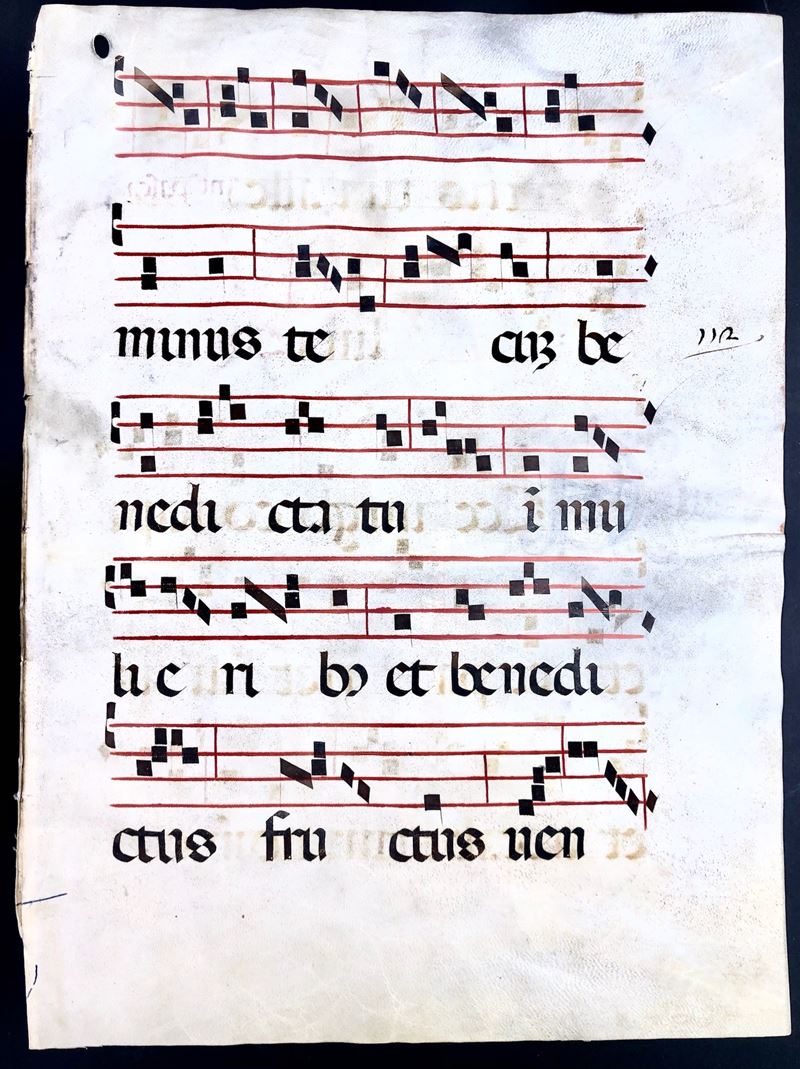 minus te cuꝫ be
112
nedi cta tu i mu
li e ri bꝯ et benedi
ctus fru ctus uen